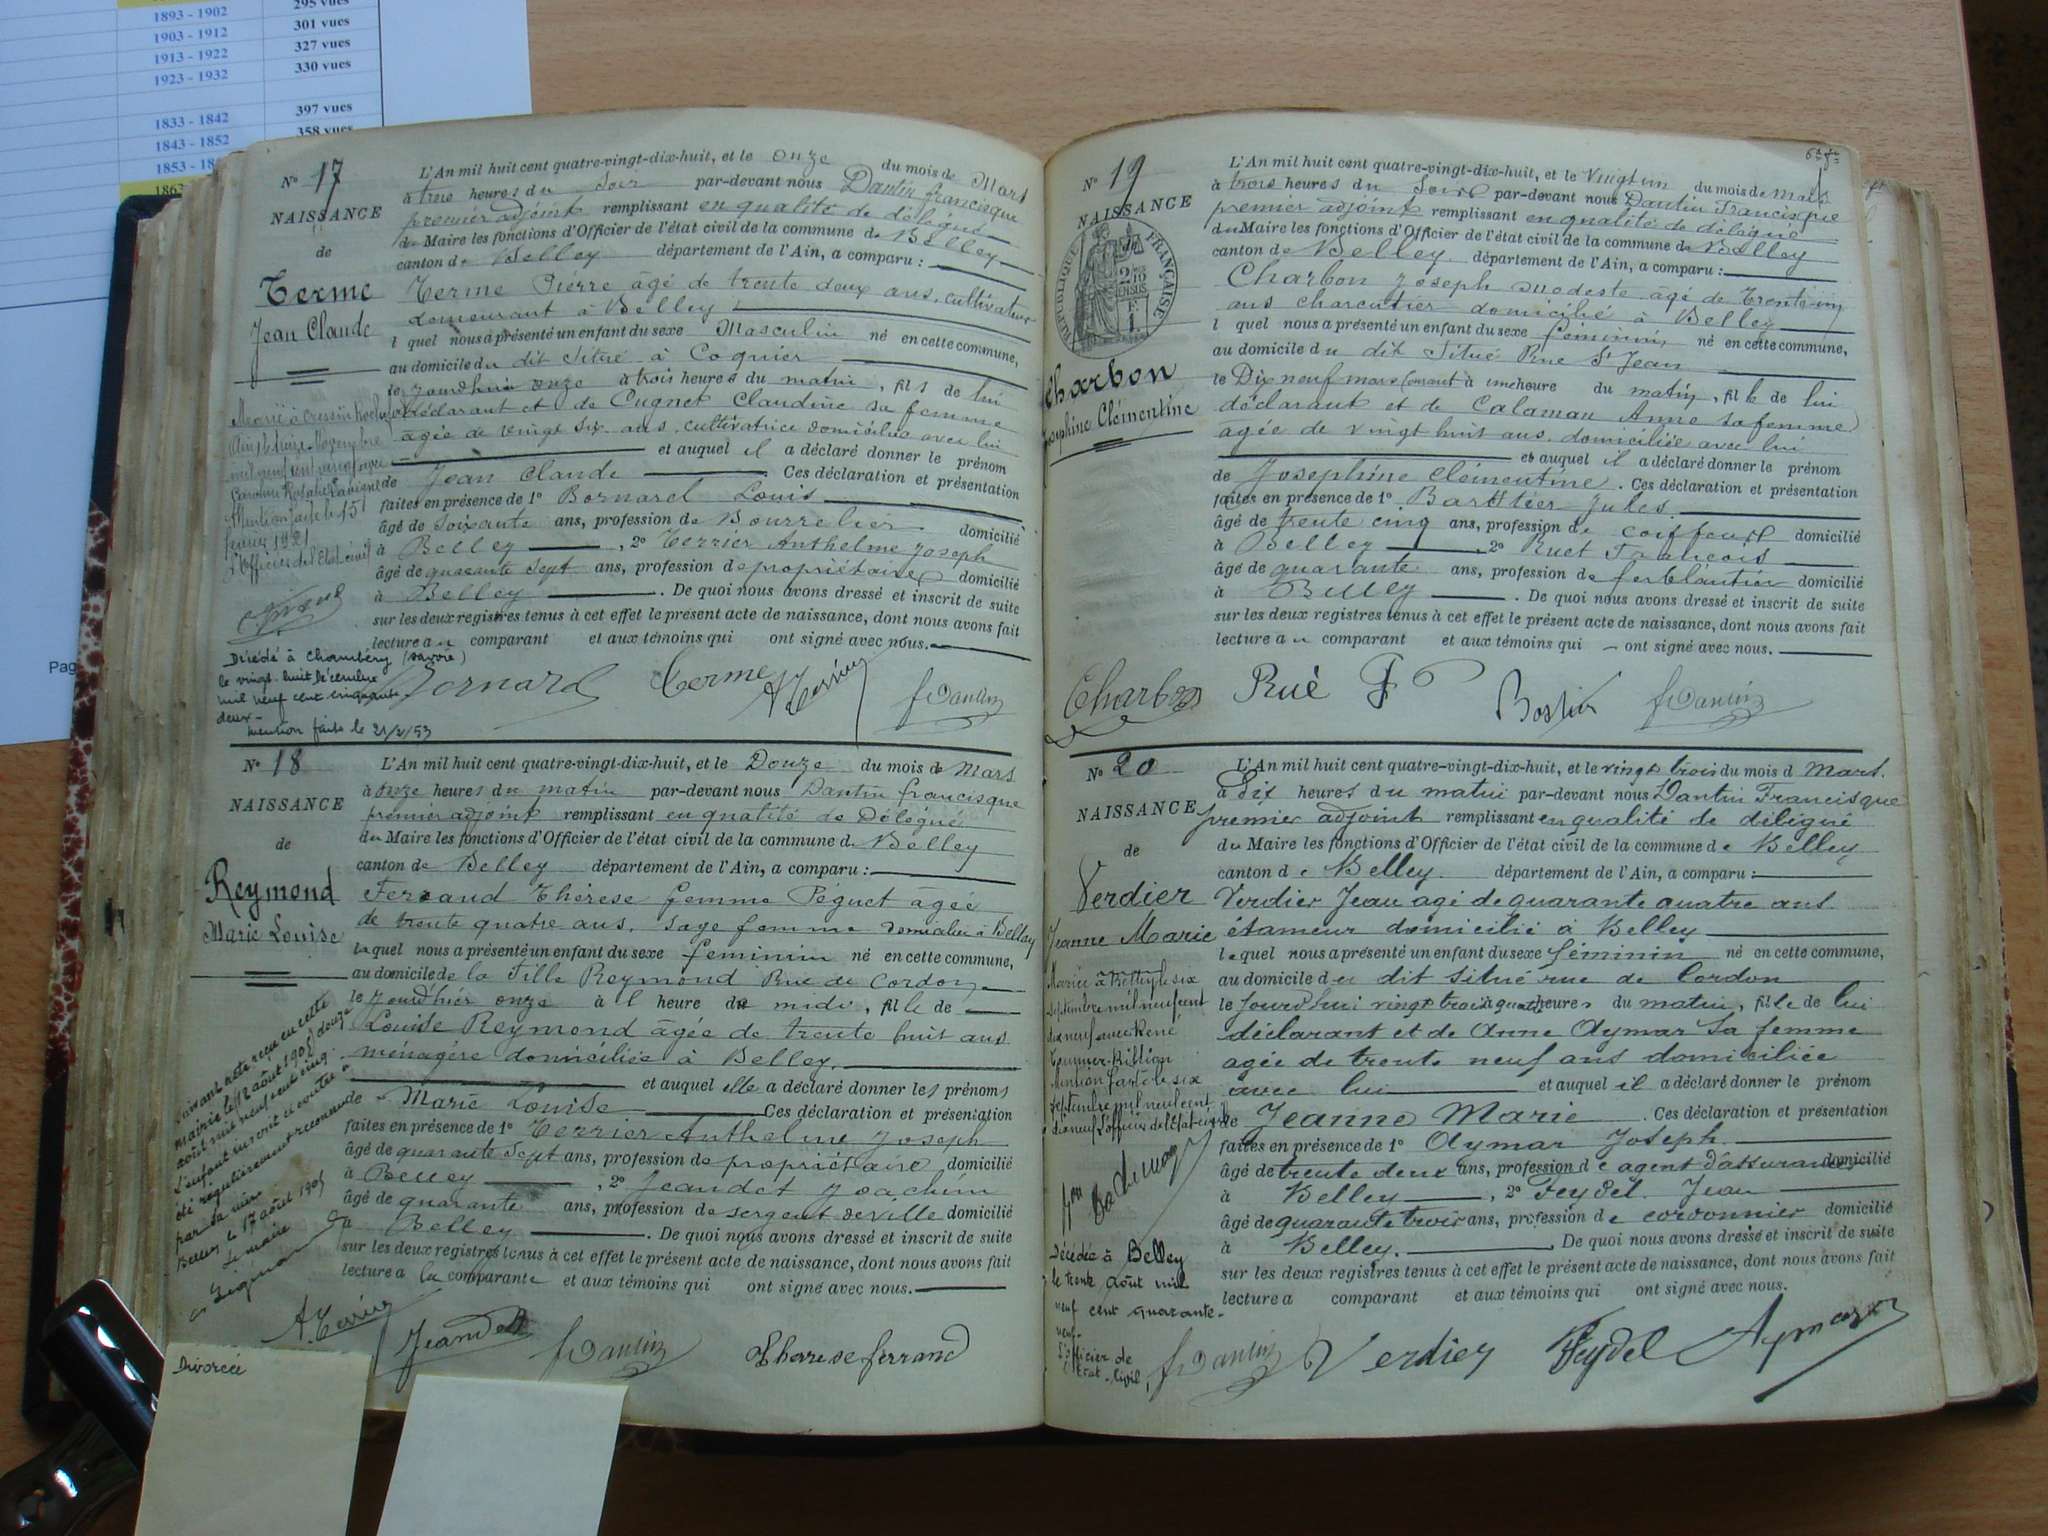 295 vues
1893 - 1902
301 vues
1903 - 1912
327 vues
1913 - 1922
330 vues
1923 - 1932
397 vues
1833 - 1842
358 vues
1843 - 1852
1853 - 18
1863
Pag
N° 17
NAISSANCE
de
Terme
Jean Claude
L'An mil huit cent quatre-vingt-dix-huit, et le onze du mois de Mars
à trois heures du Soir par-devant nous Dantin francisque
premier adjoint remplissant en qualité de délégué
du Maire les fonctions d'Officier de l'état civil de la commune de Belley
canton de Belley département de l'Ain, a comparu :
Terme Pierre âgé de trente deux ans, cultivateur
demeurant à Belley
l quel nous a présenté un enfant du sexe Masculin né en cette commune,
au domicile du dit situé à Coquier
le jourd'hui onze à trois heures du matin, fils de lui
déclarant et de Cugnet Claudine sa femme
âgée de vingt six ans, cultivatrice domiciliée avec lui
et auquel il a déclaré donner le prénom
de Jean Claude Ces déclaration et présentation
faites en présence de 1° Bornarel Louis
âgé de soixante ans, profession de Bourrelier domicilié
à Belley, 2° Terrier Anthelme Joseph
âgé de quarante sept ans, profession de propriétaire domicilié
à Belley. De quoi nous avons dressé et inscrit de suite
sur les deux registres tenus à cet effet le présent acte de naissance, dont nous avons fait
lecture au comparant et aux témoins qui ont signé avec nous.
Marié à Cressin Rochefort
mil neuf cent vingt avec
Caroline Rosalie
Mention faite le 15
février 1921
L'Officier de l'Etat civil
Décédé à Chambéry (Savoie)
le vingt huit décembre
mil neuf cent cinquante
deux -
mention faite le 21/2/53
Bornard Terme A Terrier f Dantin
N° 18
NAISSANCE
de
Reymond
Marie Louise
L'An mil huit cent quatre-vingt-dix-huit, et le Douze du mois de Mars
à onze heures du matin par-devant nous Dantin francisque
premier adjoint remplissant en qualité de Délégué
du Maire les fonctions d'Officier de l'état civil de la commune de Belley
canton de Belley département de l'Ain, a comparu :
Ferrand Thérèse femme Péguet âgée
de trente quatre ans, sage femme domiciliée à Belley
laquel nous a présenté un enfant du sexe féminin né en cette commune,
au domicile de la Fille Reymond Rue de Cordon
le jourd'hier onze à l heure de midi, fil de
Louise Reymond âgée de trente huit ans
ménagère domiciliée à Belley
et auquel elle a déclaré donner les prénoms
de Marie Louise Ces déclaration et présentation
faites en présence de 1° Terrier Anthelme Joseph
âgé de quarante sept ans, profession de propriétaire domicilié
à Belley, 2° Jeandet Joachim
âgé de quarante ans, profession de sergent de ville domicilié
à Belley. De quoi nous avons dressé et inscrit de suite
sur les deux registres tenus à cet effet le présent acte de naissance, dont nous avons fait
lecture a la comparante et aux témoins qui ont signé avec nous.
Suivant acte reçu en cette
mairie le 12 août 1905 douze
août mil neuf cent cinq
L'enfant inscrit ci contre a
été régulièrement reconnu
par sa mère
Belley le 17 août 1905
Le maire
A Terrier Jeandet f Dantin Thérèse ferrand
Divorcée
N° 19
NAISSANCE
de
RÉPUBLIQUE FRANÇAISE
Charbon
Joséphine Clémentine
L'An mil huit cent quatre-vingt-dix-huit, et le vingt un du mois de mars
à trois heures du Soir par-devant nous Dantin Francisque
premier adjoint remplissant en qualité de délégué
du Maire les fonctions d'Officier de l'état civil de la commune de Belley
canton de Belley département de l'Ain, a comparu :
Charbon Joseph modeste âgé de Trente un
ans charcutier domicilié à Belley
l quel nous a présenté un enfant du sexe féminin né en cette commune,
au domicile du dit situé Rue St Jean
le Dix neuf mars courant à une heure du matin, fille de lui
déclarant et de Calaman Anne sa femme
âgée de vingt huit ans domiciliée avec lui
et auquel il a déclaré donner le prénom
de Joséphine Clémentine. Ces déclaration et présentation
faites en présence de 1° Jules
âgé de trente cinq ans, profession de coiffeur domicilié
à Belley, 2° Ruet François
âgé de quarante ans, profession de ferblantier domicilié
à Belley. De quoi nous avons dressé et inscrit de suite
sur les deux registres tenus à cet effet le présent acte de naissance, dont nous avons fait
lecture au comparant et aux témoins qui ont signé avec nous.
Charbon Rué f Dantin
N° 20
NAISSANCE
de
Verdier
Jeanne Marie
L'An mil huit cent quatre-vingt-dix-huit, et le vingt trois du mois d Mars.
à Dix heures du matin par-devant nous Dantin Francisque
premier adjoint remplissant en qualité de délégué
du Maire les fonctions d'Officier de l'état civil de la commune de Belley
canton de Belley département de l'Ain, a comparu :
Verdier Jean agé de quarante quatre ans
étameur domicilié à Belley
lequel nous a présenté un enfant du sexe féminin né en cette commune,
au domicile du dit situé rue de Cordon
le jourd'hui vingt trois à quatre heures du matin, fille de lui
déclarant et de Anne Aymar sa femme
agée de trente neuf ans domiciliée
avec lui et auquel il a déclaré donner le prénom
de Jeanne Marie. Ces déclaration et présentation
faites en présence de 1° Aymar Joseph
âgé de trente deux ans, profession de agent d'assurances domicilié
à Belley, 2° Feydel Jean
âgé de quarante trois ans, profession de cordonnier domicilié
à Belley. De quoi nous avons dressé et inscrit de suite
sur les deux registres tenus à cet effet le présent acte de naissance, dont nous avons fait
lecture a comparant et aux témoins qui ont signé avec nous.
Mariée à Belley le six
septembre mil neuf cent
dix neuf avec René
Mention faite le six
septembre mil neuf cent
dix neuf L'officier de l'Etat-civil
Décédée à Belley
le trente août mil
neuf cent quarante-
neuf.
L'officier de
l'état-civil,
f Dantin Verdier Feydel Aymar